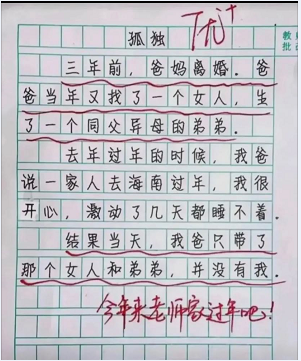 孤独
优+
三年前，爸妈离婚．爸
爸当年又找了一个女人，生
了一个同父异母的弟弟．
去年过年的时候，我爸
说一家人去海南过年，我很
开心，激动了几天都睡不着．
结果当天，我爸只带了
那个女人和弟弟，并没有我．
今年来老师家过年吧！